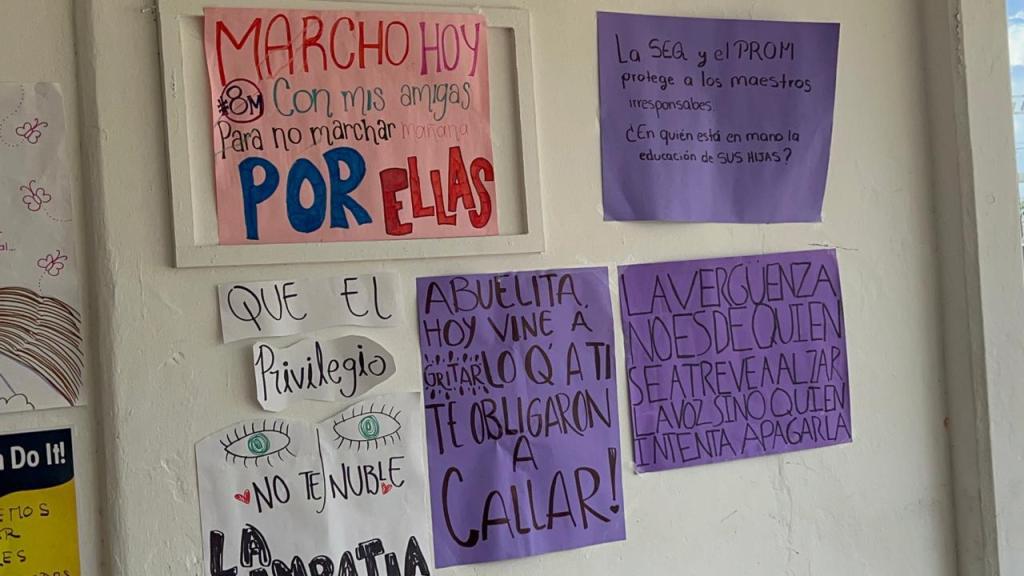 MARCHO HOY
#8M Con mis amigas
Para no marchar mañana
POR ELLAS
La SEQ y el PROMI
protege a los maestros
irresponsabes.
¿En quién está en mano la
educación de SUS HIJAS?
QUE EL
Privilegio
NO TE NUBLE
LA
EMPATIA
ABUELITA,
HOY VINE A
GRITAR LO Q' A TI
TE OBLIGARON
A
CALLAR!
LA VERGÜENZA
NO ES DE QUIEN
SE ATREVE A ALZAR
LA VOZ, SINO QUIEN
INTENTA APAGARLA
Do It!